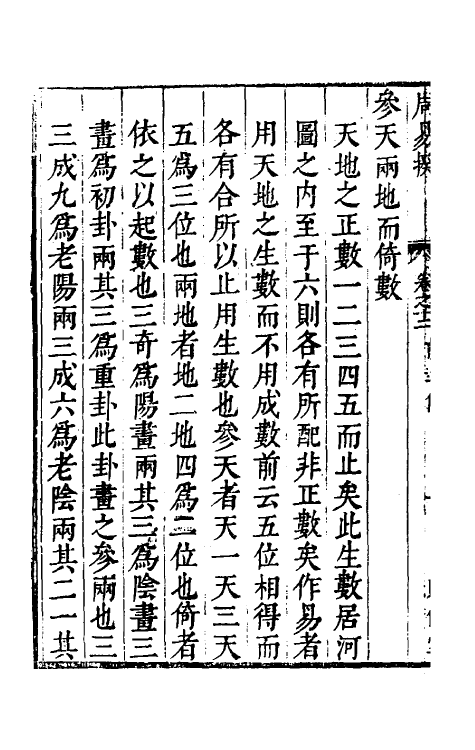 周易揆
卷之十二
參天兩地而倚數
天地之正數一二三四五而止矣此生數居河
圖之內至于六則各有所配非正數矣作易者
用天地之生數而不用成數前云五位相得而
各有合所以止用生數也參天者天一天三天
五爲三位也兩地者地二地四爲二位也倚者
依之以起數也三奇爲陽畫兩其三爲陰畫三
畫爲初卦兩其三爲重卦此卦畫之參兩也三
三成九爲老陽兩三成六爲老陰兩其二一其